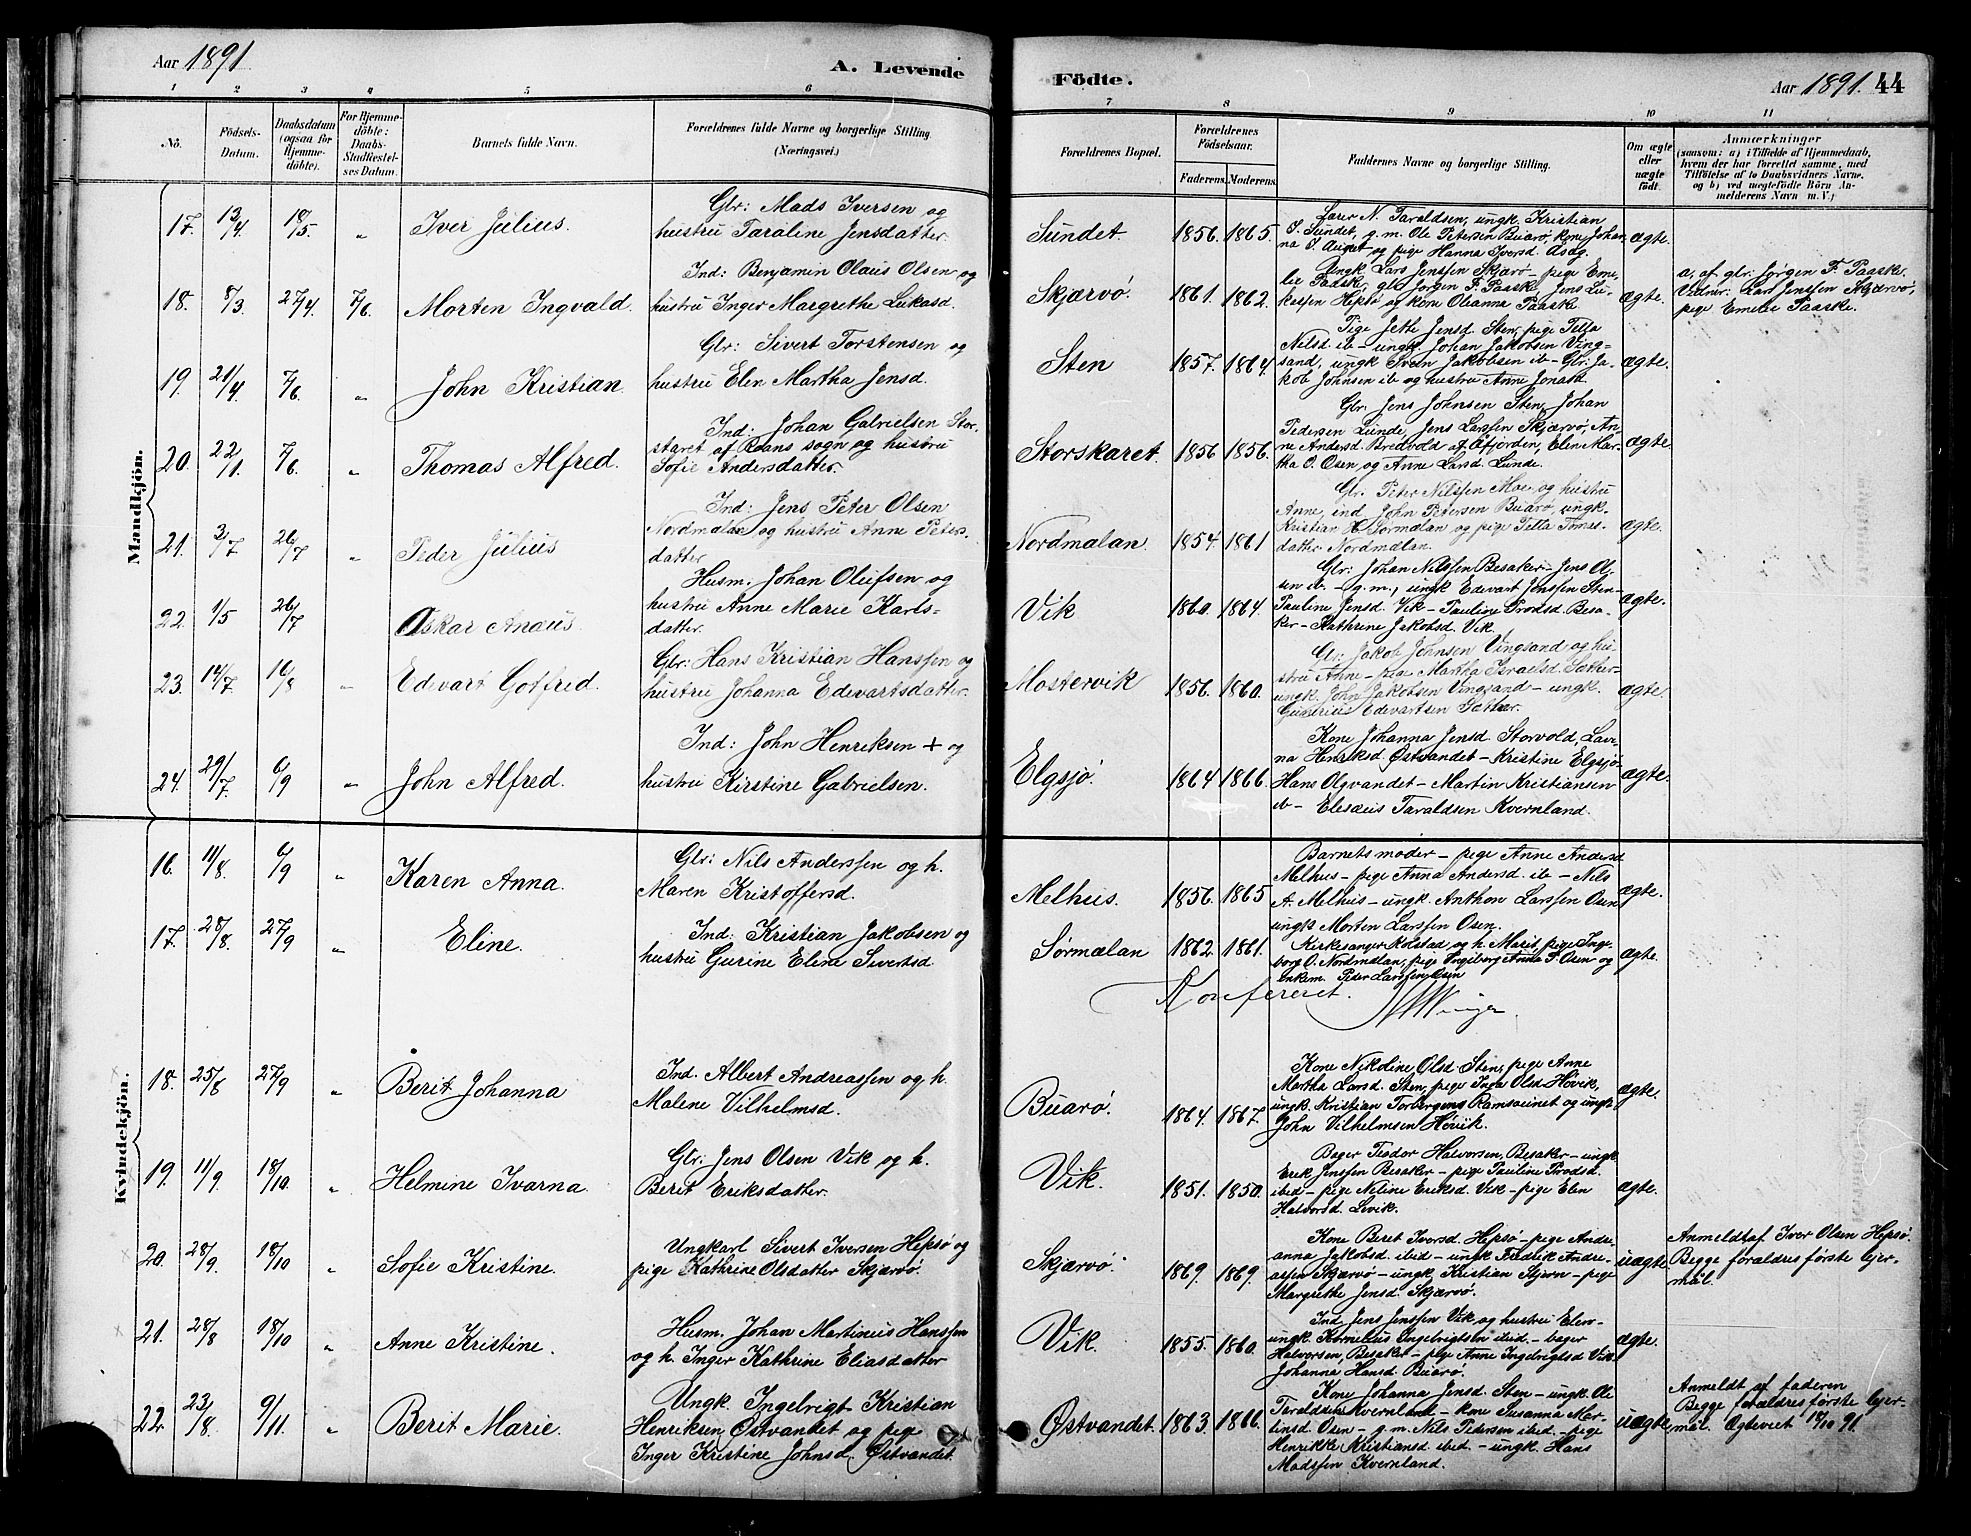 Aar 1891
A. Levende
Födte.
Aar 1891. 44
1 2 3 4 5 6 7 8 9 10 11
No.
Födsels-
Datum.
Daabsdatum
(ogsaa for
Hjemme-
döbte).
For Hjemme-
döbte:
Daabs-
Stadfæstel-
ses Datum.
Barnets fulde Navn.
Forældrenes fulde Navne og borgerlige Stilling.
(Næringsvei.)
Forældrenes Bopæl.
Forældrenes
Födselsaar.
Faderens. Moderens.
Faddernes Navne og borgerlige Stilling.
Om ægte
eller
uægte
födt.
Anmærkninger
(saasom: a) i Tilfælde af Hjemmedaab,
hvem der har forrettet samme, med
Tilföielse af to Daabsvidners Navne,
og b) ved uægtefödte Börn An-
melderens Navn m. V.)
Mandkjön.
17. 13/4 18/5. " Iver Julius.
Glr: Mads Iversen og
hustru Taraline Jensdatter.
Sundet. 1856. 1865.
Lærer N. Taraldsen, ungk. Kristian
S. Sundet, g.m. Ole Petersen Buarø, kone Johan-
na S. og pige Hanna Iversd.
ægte.
18. 8/3. 27/4. 7/6. Morten Ingvald.
Ind: Benjamin Olaus Olsen og
hustru Inger Margrethe Lukasd.
Skjærvø. 1861. 1862.
Ungk. Lars Jenssen Skjærø - pige Eme-
lie Paaske, glr Jørgen F. Paaske, Jens Lu-
kassen Hepsø og kone Oleanna Paaske
ægte.
a, af glr. Jørgen F. Paaske.
Vidner: Lars Jenssen Skjærvø,
pige Emelie Paaske.
19. 21/4 7/6. " John Kristian.
Glr: Sivert Torstensen og
hustru Elen Martha Jensd.
Sten 1857. 1864.
Pige Jette Jensd. Sten, pige Tella
Nilsd ib - ungk. Johan Jakobsen Ving-
sand, ungk Sven Jakobsen ib - Glr: Ja-
kob Johnsen ib og hustru Anne
ægte.
20. 22/1. 7/6. " Thomas Alfred.
Ind: Johan Gabrielsen Stor-
skaret af Roans sogn og hustru
Sofie Andersdatter.
Storskaret. 1856 1856.
Glr, Jens Johnsen Sten, Johan
Pedersen Lunde, Jens Larssen Skjærvø, An-
ne Andersd. Bredvold af Åfjorden, Eline Mar-
tha O. Osen, og Anne Larsd. Lunde.
ægte.
21. 3/7 26/7 " Peder Julius
Ind: Jens Peter Olsen
Nordmalan og hustru Anne Peters-
datter.
Nordmalan. 1854. 1861
Glr. Peter Nilssen Moe og hustru
Anne, ind John Petersen Buarø, ungk.
Kristian Sørmalan og pige Tella Tomas-
datter Nordmalan.
ægte.
22. 1/5 26/7 " Oskar Anaus.
Husm. Johan Olufsen og
hustru Anne Marie Karls-
datter.
Vik 1860. 1864.
Glr: Johan Nilssen Besaker - Jens Ol-
sen ib. - g.m., ungk Edevart Jenssen Sten -
Pauline Jensd. Vik - Pauline Trodsd. Besa-
ker - Kathrine Jakobsd. Vik.
ægte.
23. 14/7 16/8 " Edevart Gotfred.
Glr: Hans Kristian Hanssen og
hustru Johanna Edevartsdatter.
Mostervik 1856. 1860.
Glr: Jakob Johnsen Vingsand og hu-
stru Anne - pige Martha Israelsd. Sæther -
ungk. John Jakobsen Vingsand - ungk.
Gunerius Edevartsen Sæther.
ægte.
24. 29/7. 6/9 " John Alfred.
Ind: John Henriksen + og
hustru Kirstine Gabrielsen.
Elgsjø. 1864 1866.
Kone Johanna Jensd Storvold, Lavi-
na Henriksd. Østvandet - Kristine Elgsjø
Hans Olgvandet - Martin Kristiansen
ib - Elesæus Taraldsen Kvernland.
ægte.
Kvindekjön.
16. 11/8. 6/9 " Karen Anna.
Glr: Nils Anderssen og h.
Maren Kristoffersd.
Melhus. 1856. 1865
Barnets moder - pige Anne Andersd
Melhus - pige Anna Andersd. ib - Nils
A. Melhus - ungk. Anthon Larssen Osen
ungk Morten Larssen Osen.
ægte.
17. 28/8. 27/9 " Eline.
Ind: Kristian Jakobsen og
hustru Gurine Eline Sivertsd.
Sørmælan 1862. 1861.
Kirkesanger Kolstad, og h. Marit, pige Inge-
borg O. Nordmælan, pige Ingeborg Anna P. Osen og
enkem. Peter Larssen Osen
ægte.
Konfereret.
18. 25/8 27/9 " Berit Johanna
Ind. Albert Andreassen og h.
Malene Vilhelmsd.
Buarø. 1864. 1867.
Kone Nikoline Olsd Sten, pige Anne
Martha Larsd. Sten, pige Inga Olsd Høvik,
ungk. Kristian Torbergens Ramsøeinet og ungk
John Vilhelmsen Høvik.
ægte.
19. 11/9. 18/10. " Helmine Ivarna.
Glr, Jens Olsen Vik og h.
Berit Eriksdatter.
Vik. 1851. 1850.
Bager Teodor Halvorsen, Besaker - ungk
Erik Jenssen Besaker - pige Pauline Trodsd.
ibid - pige Neline Eriksd. Vik - pige Elen
Halvorsd. Sivik.
ægte.
20. 28/9. 18/10 " Sofie Kristine.
Ungkarl Sivert Iversen Hepsø og
pige Kathrine Olsdatter Skjærvø.
Skjærvø. 1869. 1869.
Kone Beret Iversd. Hepsø - pige Ande-
anna Jakobsd ibid - ungk Fredrik Andre-
assen Skjærvø - ungk, Kristian Stjern - pige
Margrethe Jensd. Skjærvø.
uægte.
Anmeldt af Iver Olsen Hepsø.
Begge forældres første lejer-
mål.
21. 28/8 18/10 " Anne Kristine.
Husm. Johan Martinus Hanssen
og h. Inger Kathrine Eliasdatter
Vik. 1855. 1860.
Ind Jens Jenssen Vik og hustru Elen -
ungk. Kornelius Ingebrigtsen ibid. - bager
Halvorsen, Besaker - pige Anne Ingebrigtsd Vik.
Johanna Hansd. Buarø.
ægte.
22. 23/8. 9/11. " Berit Marie.
Ungk. Ingebrigt Kristian
Henriksen Østvandet og pige
Inger Kristine Johnsd. Østvandet.
Østvandet. 1863. 1866.
Kone Johanna Jensd. Sten - ungk. Ole
Taraldsen Kvernland - kone Susanna Mar-
tinsd Osen - g.m. Nils Pedersen ibid. - pige
Henrikke Kristiansd ibid. - ungk. Hans
Madssen Kvernland.
uægte
Anmeldt af faderen
Begge forældres første lejer-
mål. Ægteviet 18/10 91.